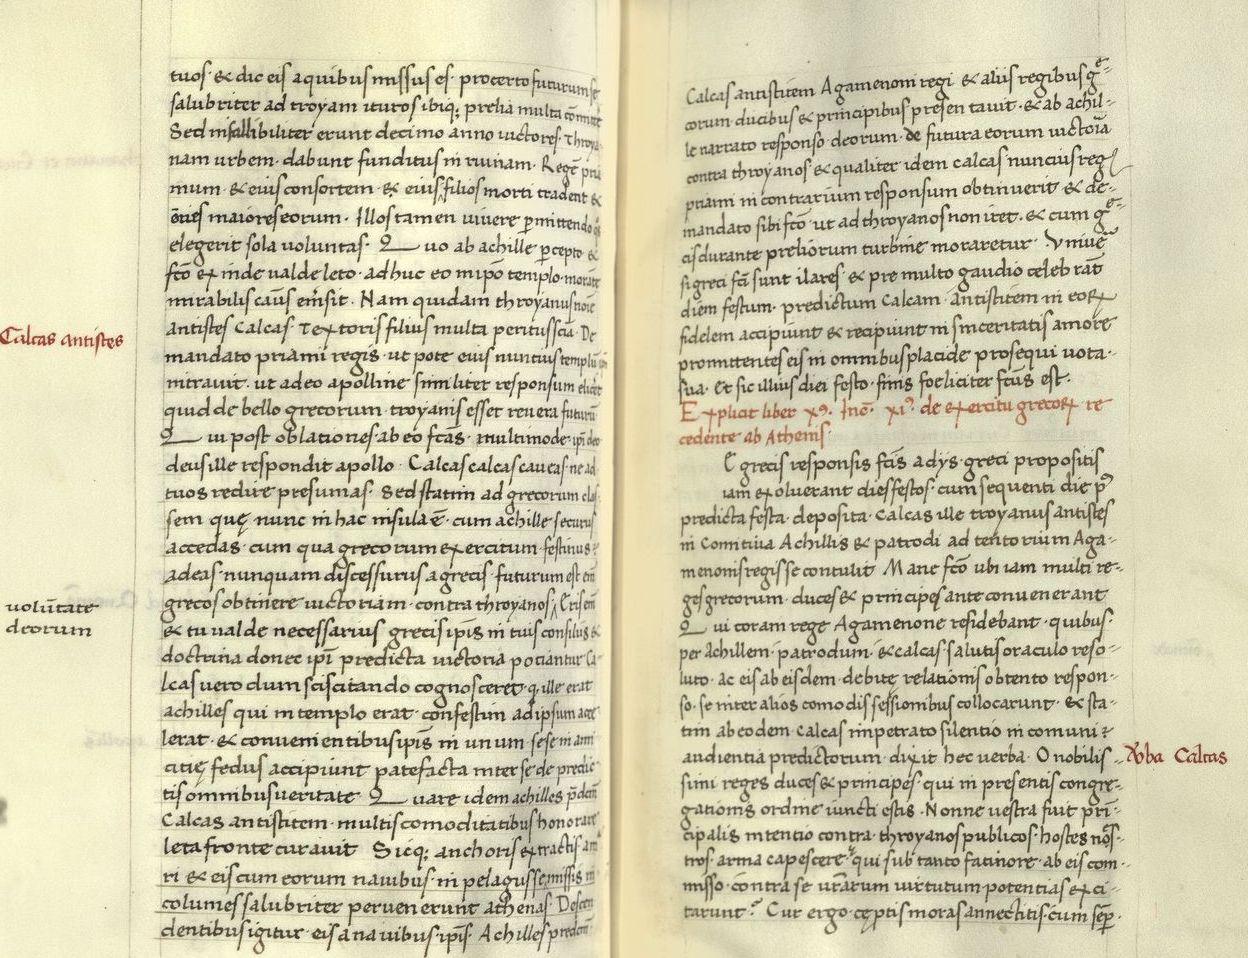 tuos· & dic eis a quibus missus es· pro certo futurum
salubriter ad troyam ituros ibiq; prelia multa
Sed infallibiliter erunt decimo anno uictores·
nam urbem· dabunt funditus in ruinam· Regē
mum· & eius consortem· & eius filios morti tradent &
maiores eorum· Illos tamen uiuere permittendo
elegerit sola uoluntas· Quo ab achille pcepto· &
fcō ex inde ualde leto· adhuc eo in ipō templo·
mirabilis cāus· Nam quidam throyanus
Calcas antistes
antistes Calcas· Textoris filius multa peritus scīa· De
mandato priami regis· ut pote eius nuntius
intrauit· ut a deo apolline similiter responsum
quid de bello grecorum· troyanis esset reuera
Qui post oblationes ab eo fcās· multimode·
deus ille respondit apollo· Calcas calcas caueas· ne ad
tuos redire presumas· Sed statim ad grecorum
sem quę nunc in hac insula ē· cum achille·
accedas· cum qua grecorum exercitum· festinus
adeas· nunquam discessurus a grecis· futurum est
uolūtate
deorum
grecos obtinere uictoriam· contra throyanos
& tu ualde necessarius grecis ipīs in tuis consiliis &
doctrina donec ipī predicta uictoria potiantur Ca-
lcas uero dum sciscitando cognosceret· q ille erat
achilles qui in templo erat· confestim ad ipsum
lerat· & conuenientibus ipīs in unum· sese in
citię fedus accipiunt patefacta inter se· de
tis omnibus ueritate· Quare idem achilles
Calcas antistitem· multis comoditatibus
leta fronte curauit Sicq; anchoris extractis
ri & eis cum eorum nauibus· in pelagus
columes salubriter peruenerunt athenas·
dentibus igitur eis a nauibus· ipīs· Achilles
Calcas antistitem Agamenoni regi & aliis regibus gͤ-
corum· ducibus & principibus presentauit· & ab achil-
le narrato responso deorum· de futura eorum uictoīa
contra throyanos & qualiter idem calcas nuncius
priami in contrarium responsum obtinuerit & de-
mandato sibi fcō ut ad throyanos non iret· & cum gͤ-
cis durante preliorum turbine moraretur·
si greci fcī sunt ilares· & pre multo gaudio
diem festum· predictum Calcam· antistitem in
fidelem accipiunt & recipiunt in sinceritatis amore
promittentes eis in omnibus placide prosequi uota·
sua· Et sic illius diei festo· finis foeliciter fcūs est·
Explicit liber de exercitu re
cedente ab Athenis·
grecis responsis fcīs a dys· greci propositis
iam exoluerant dies festos· cum sequenti die
predicta festa· deposita· Calcas ille troyanus antistes
in comitiua Achillis & patrodi ad tentorium Aga-
menonis regis se contulit Mane fcō ubi iam multi re-
ges grecorum· duces & principes ante conuenerant
Qui coram rege Agamenone residebant· quibus·
per achillem· patrodum· & calcas· salutis oraculo reso-
luto· ac eis ab eisdem· debitę relationis obtento respon-
so· se inter alios comodis sessionibus collocarunt· & sta-
tim ab eodem calcas inpetrato silentio in comuni
Calcas
audientia predictorum· dixit hec uerba· O nobilis-
simi reges duces & principes· qui in presentis congre-
gationis ordine iuncti estis· Nonne uestra fuit prī-
cipalis intentio contra· throyanos publicos· hostes nōs-
tros· arma capescere qui sub tanto facinore· ab eis com-
misso· contra se urārum uirtutum· potentias exci-
tarunt? Cur ergo· cęptis moras annectitis· cum sēp·